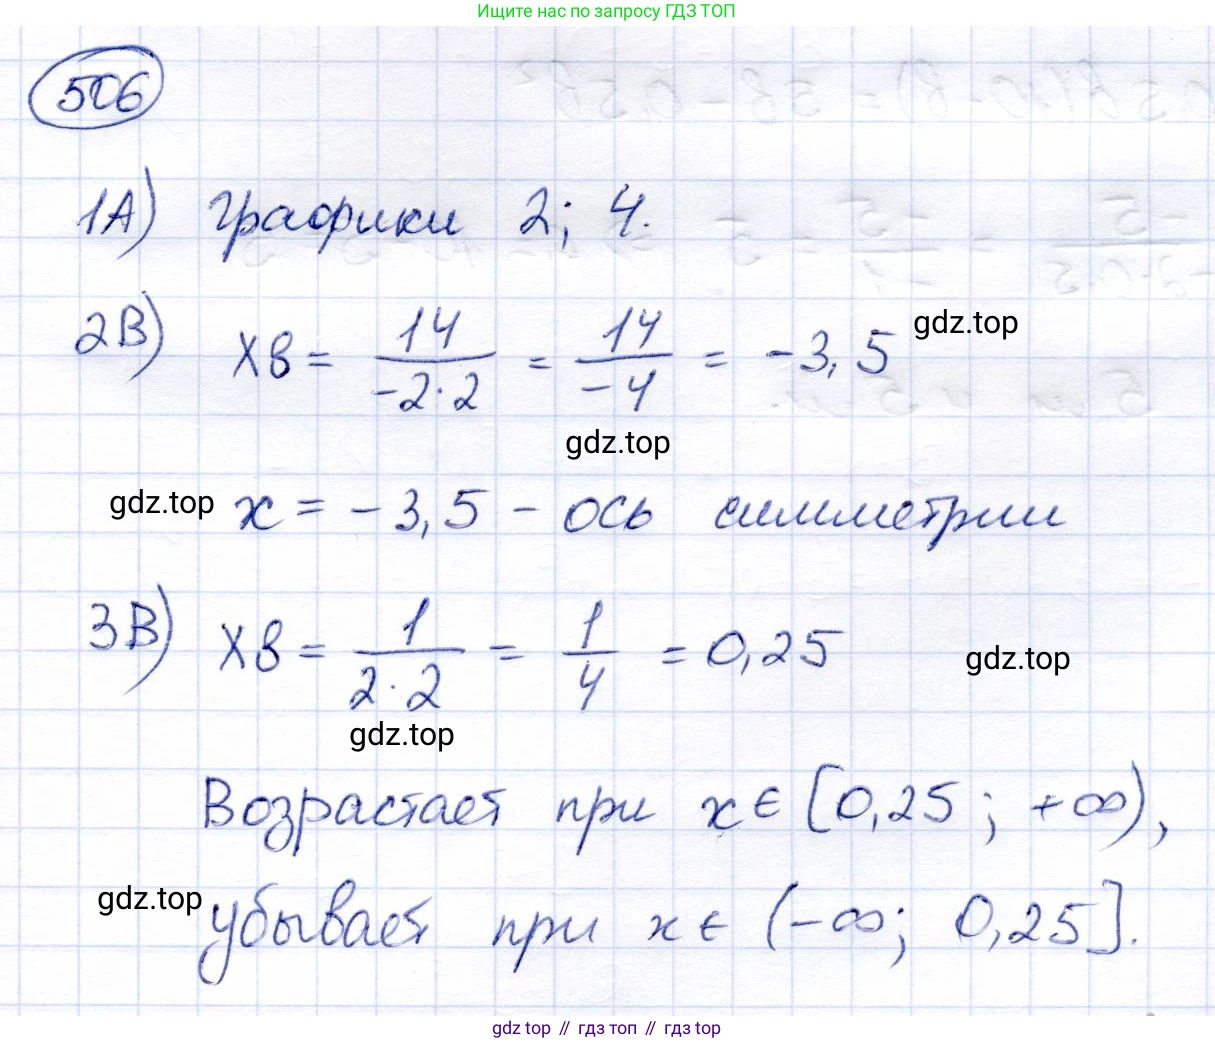 Ищите нас по запросу ГДЗ ТОП
506
1А) Графики 2; 4.
2В) Xв = 14/(-2·2) = 14/(-4) = -3,5 gdz.top
gdz.top
gdz.top x = -3,5 - ось симметрии
3В) Xв = 1/(2·2) = 1/4 = 0,25 gdz.top
gdz.top
Возрастает при x ∈ [0,25; +∞),
gdz.top убывает при x ∈ (-∞; 0,25].
gdz top // гдз топ // гдз top